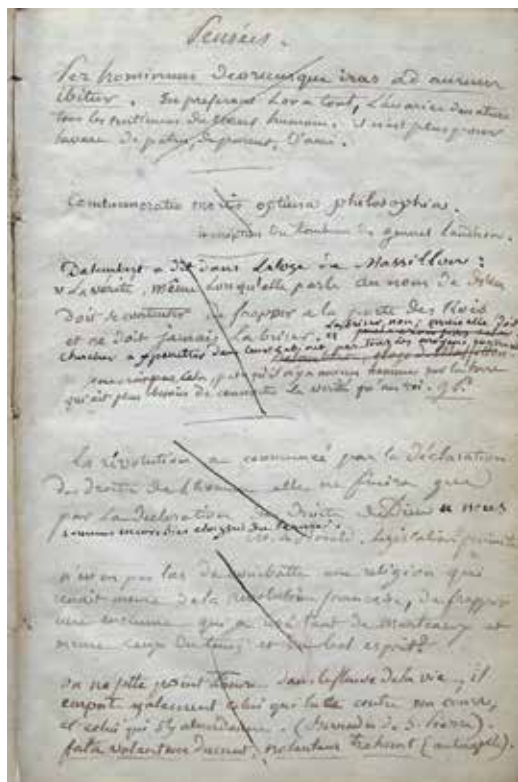 Pensées.
Per hominum deorumque iras ad aurum
ibitur. En preferant l'or a tout, l'avarice denature
tous les sentimens du genre humain. il n'est plus pour
l'avare de patrie, de parens, d'ami.
Commemoratio mortis optima philosophia.
inscription du tombeau du general Laudhon.
Dalembert a dit dans l'eloge de Massillon:
La verité, même lorsqu'elle parle au nom de Dieu
doit se contenter de frapper a la porte des Rois
et ne doit jamais la briser. La briser, non; mais elle doit
chercher a penetrer dans
qu'il n'y a aucun homme sur la terre
qui ait plus besoin de connaitre la verité qu'un roi.
La révolution a commencé par la déclaration
des droits de l'homme elle ne finira que
par la declaration des droits de Dieu nous
sommes encore bien eloignés du
M. de Bonald. Legislation primitive
n'est on pas las de combattre une religion qui
de la révolution francaise, de frapper
une enclume qui a usé tant de marteaux et
meme ceux du tems et du bel esprit?
On ne jette point l'ancre dans le fleuve de la vie, il
emporte egalement celui qui lutte contre son cours,
et celui qui s'y abandonne. (Bernardin de S. Pierre).
fata volentem ducunt, nolentem trahunt